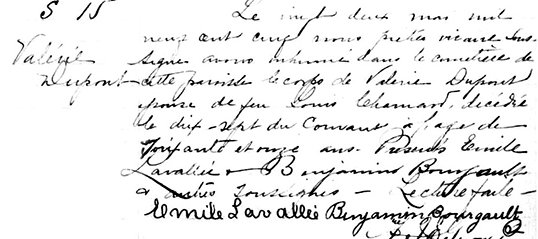 S 15
Valérie
Dupont
Le vingt deux mai mil
neuf cent cinq nous prêtre vicaire sous-
signé avons inhumé dans le cimetière de
cette paroisse le corps de Valérie Dupont
épouse de feu Louis Chamard, décédée
le dix-sept du courant à l'age de
soixante et onze ans. Présents Emile
Lavallée & Benjamin Bourgault
& autres soussignés — Lecture faite —
Emile Lavallée Benjamin Bourgault